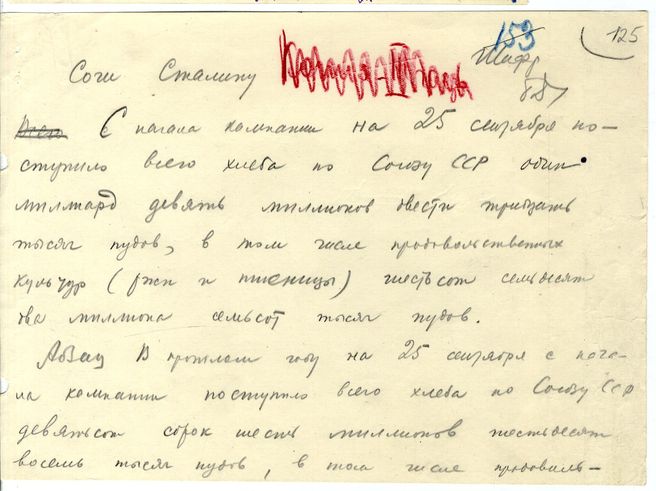 153
125
Сочи Сталину
Шифр
Всего С начала кампании на 25 сентября по-
ступило всего хлеба по Союзу ССР один
миллиард девять миллионов двести тридцать
тысяч пудов, в том числе продовольственных
культур (ржи и пшеницы) шестьсот семьдесят
два миллиона семьсот тысяч пудов.
Абзац В прошлом году на 25 сентября с нача-
ла кампании поступило всего хлеба по Союзу ССР
девятьсот сорок шесть миллионов шестьдесят
восемь тысяч пудов, в том числе продоволь-